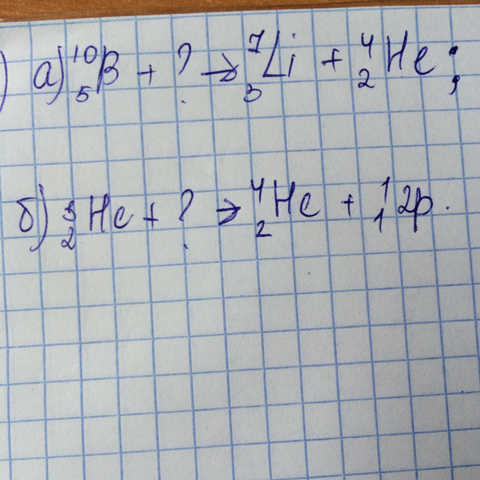 ) а) ¹⁰₅B + ? → ⁷₃Li + ⁴₂He;
б) ³₂He + ? → ⁴₂He + ¹₁2p.